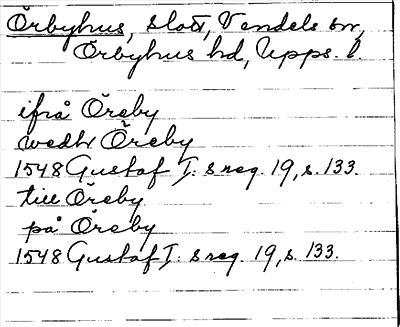 Örbyhus, slott, Vendels sn,
Örbyhus hd, Upps. l.
ifrå Öreby
wedh Öreby
1548 Gustaf I:s reg. 19, s. 133.
till Öreby
på Öreby
1548 Gustaf I:s reg. 19, s. 133.